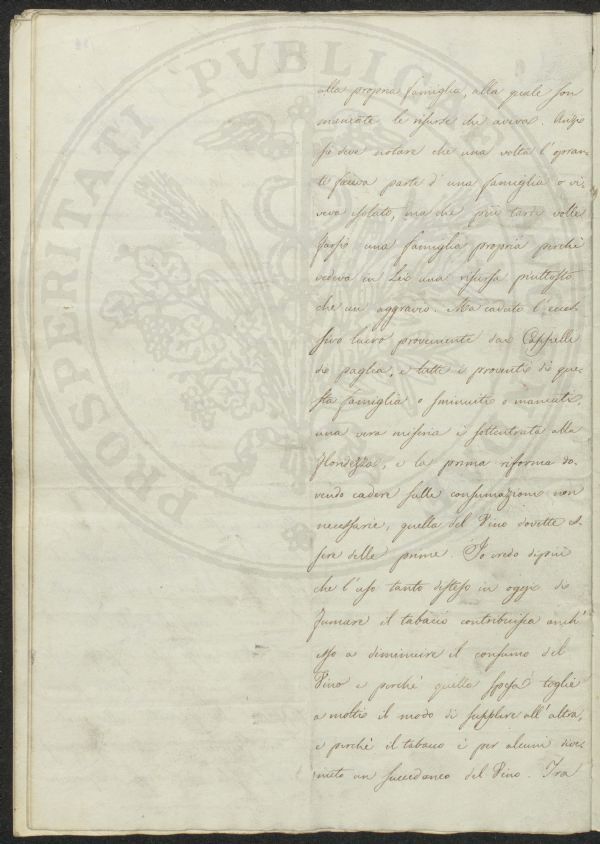 PROSPERITATI PVBLICA
alla propria famiglia, alla quale son
mancate le risorse che aveva. Anzi
si deve notare che una volta l'opran-
te faceva parte d'una famiglia o vi-
veva isolato, ma che più tardi volle
farsi una famiglia propria perchè
vedeva in Lei una risorsa piuttosto
che un aggravio. Ma caduto l'eces-
sivo lucro proveniente dai Cappelli
di paglia, e tutti i proventi di que-
sta famiglia o sminuiti o mancati,
una vera miseria è sottentrata alla
floridezza, e la prima riforma do-
vendo cadere sulle consumazioni non
necessarie, quella del Vino dovette es-
sere delle prime. Io credo dipiù
che l'uso tanto disteso in oggi di
fumare il tabacco contribuisca anch'
esso a diminuire il consumo del
Vino e perchè quella spesa toglie
a molti il modo di supplire all'altra,
e perchè il tabacco è per alcuni dive-
nuto un succedaneo del Vino. Tra